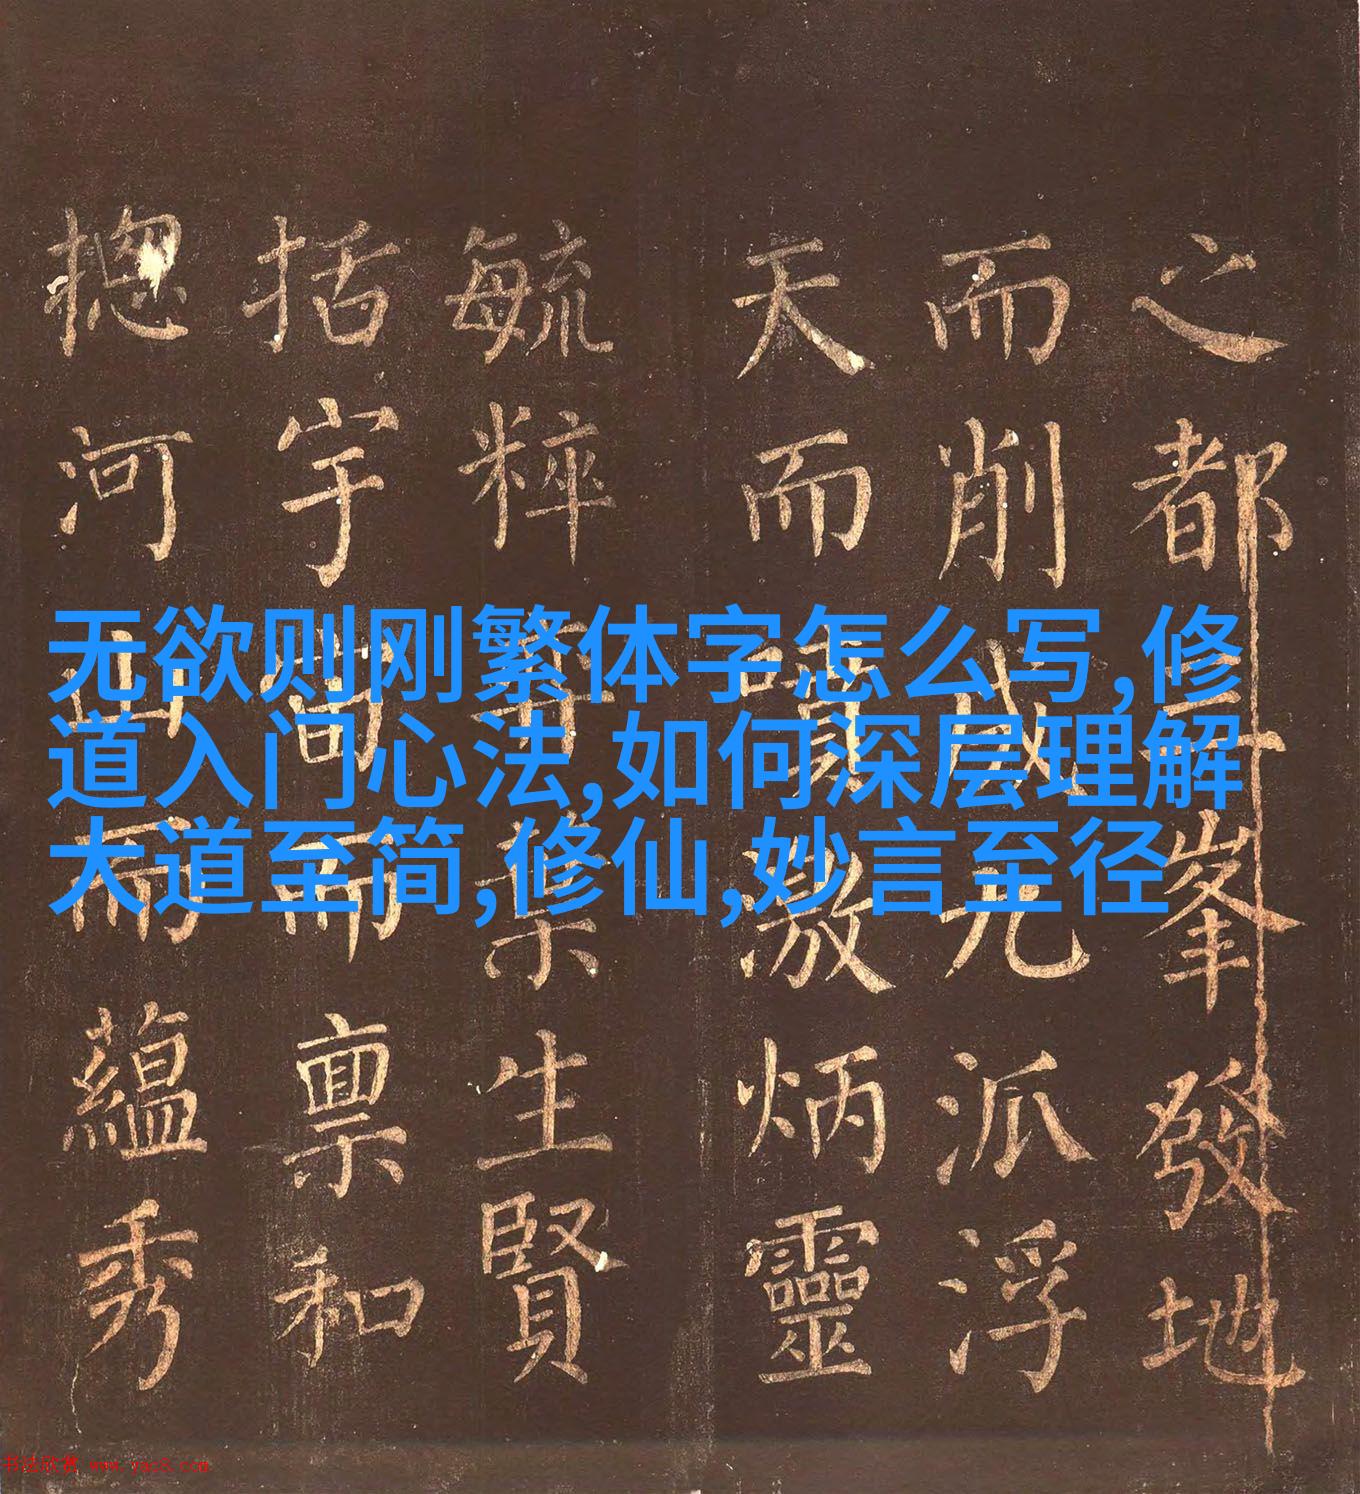 之都三峯發地
而削成九派浮
天而噴激炳靈
毓粹生賢
括宇而禀和
揔河山而蘊秀
无欲则刚繁体字怎么写,修
道入门心法,如何深层理解
大道至简,修仙,妙言至径
书法欣赏 www.yac8.com